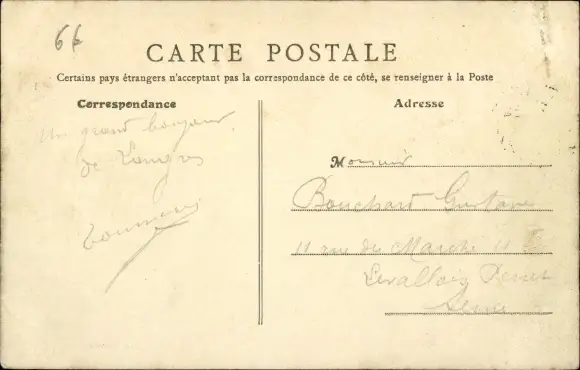 66
CARTE POSTALE
Certains pays étrangers n'acceptant pas la correspondance de ce côté, se renseigner à la Poste
Correspondance
Un grand bonjour
de Langres
Adresse
Monsieur
Bouchard Gustave
11 rue du Marché 11
Levallois Perret
Seine